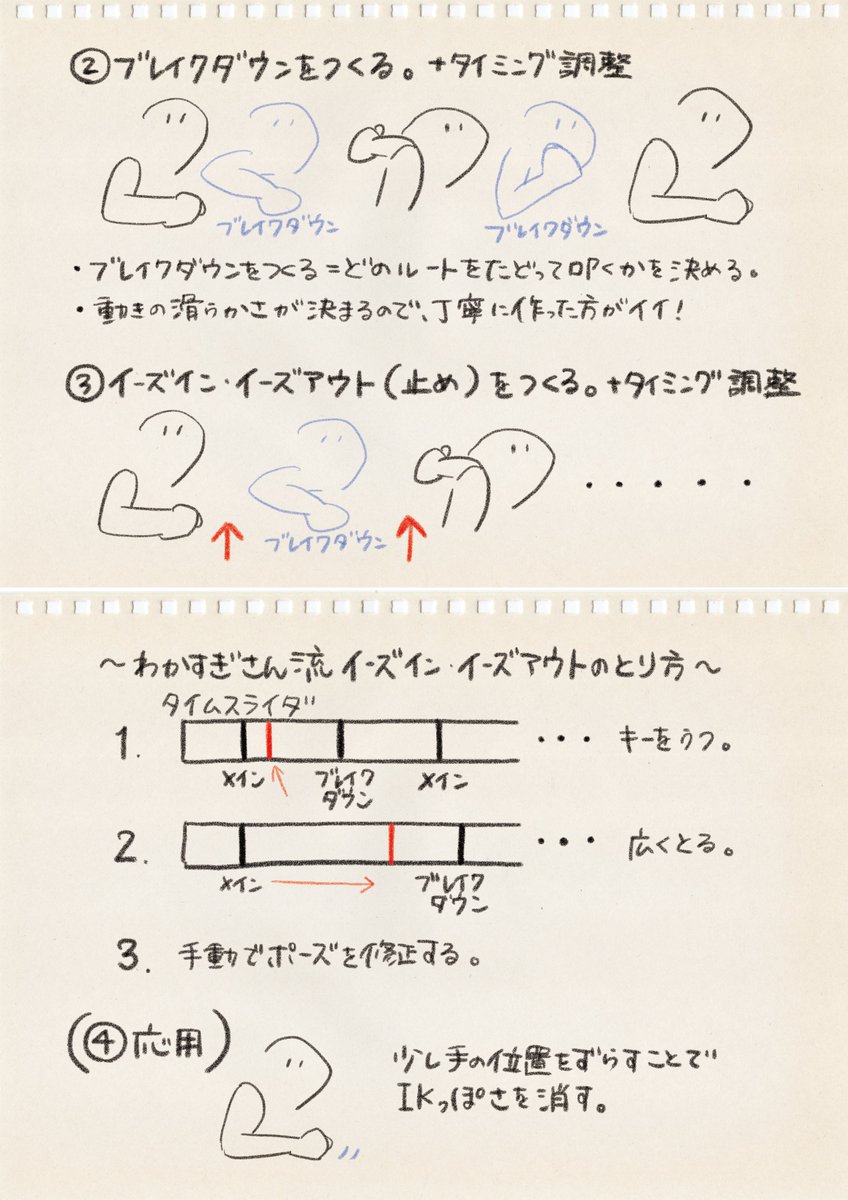 ②ブレイクダウンをつくる。+タイミング調整
ブレイクダウン
ブレイクダウン
・ブレイクダウンをつくる=どのルートをたどって叩くかを決める。
・動きの滑らかさが決まるので、丁寧に作った方がイイ!
③イーズイン・イーズアウト(止め)をつくる。+タイミング調整
ブレイクダウン
・・・・・
〜わかすぎさん流 イーズイン・イーズアウトのとり方〜
タイムスライダ
1. ・・・ キーをうつ。
メイン ブレイク メイン
ダウン
2. ・・・ 広くとる。
メイン ブレイク
ダウン
3. 手動でポーズを修正する。
(④応用)
少し手の位置をずらすことで
IKっぽさを消す。